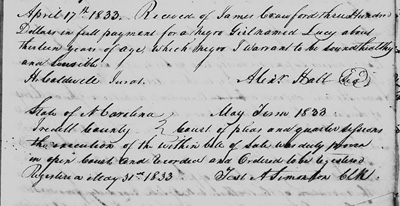 April 17th 1833. Received of James Crawford three Hundred
Dollars in full payment for a Negro Girl named Lucy about
thirteen years of age, which Negro I Warrant to be Sound healthy
and Sensible
H. Caldwell Jurat. Alexr Hall (Seal)
State of N Carolina May Term 1833
Iredell County Court of pleas and quarter Sessions
the execution of the within bill of Sale was duly proven
in open Court and recorded and Ordered to be registered
Registered May 31st 1833 Test A Simonton Clk.